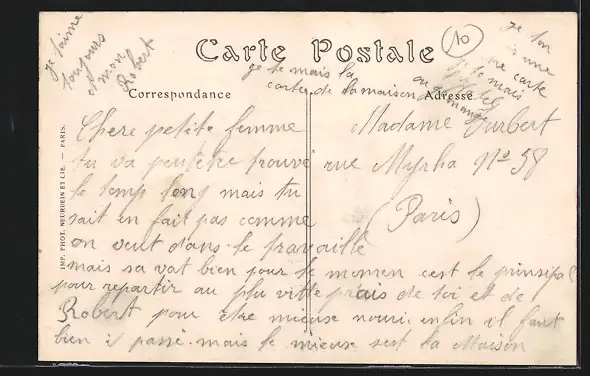 Carte Postale
Correspondance
Adresse
IMP. PHOT. NEURDEIN ET CIE. — PARIS.
10
je t'aime
toujours
mon
Robert
je te mais la
carte de la maison
je ton
une
carte
je te mais
Madame Jurbert
rue Myrha No 58
(Paris)
Chere petite femme
tu va peutetre trouvé
le temp long mais tu
sait en fait pas comme
on veut dans le travaille
mais sa vat bien pour le momen cest le principal
pour repartir au plu vitte prais de toi et de
Robert pour être mieuse nouri enfin il faut
bien i passé. mais le mieuse sest la Maison